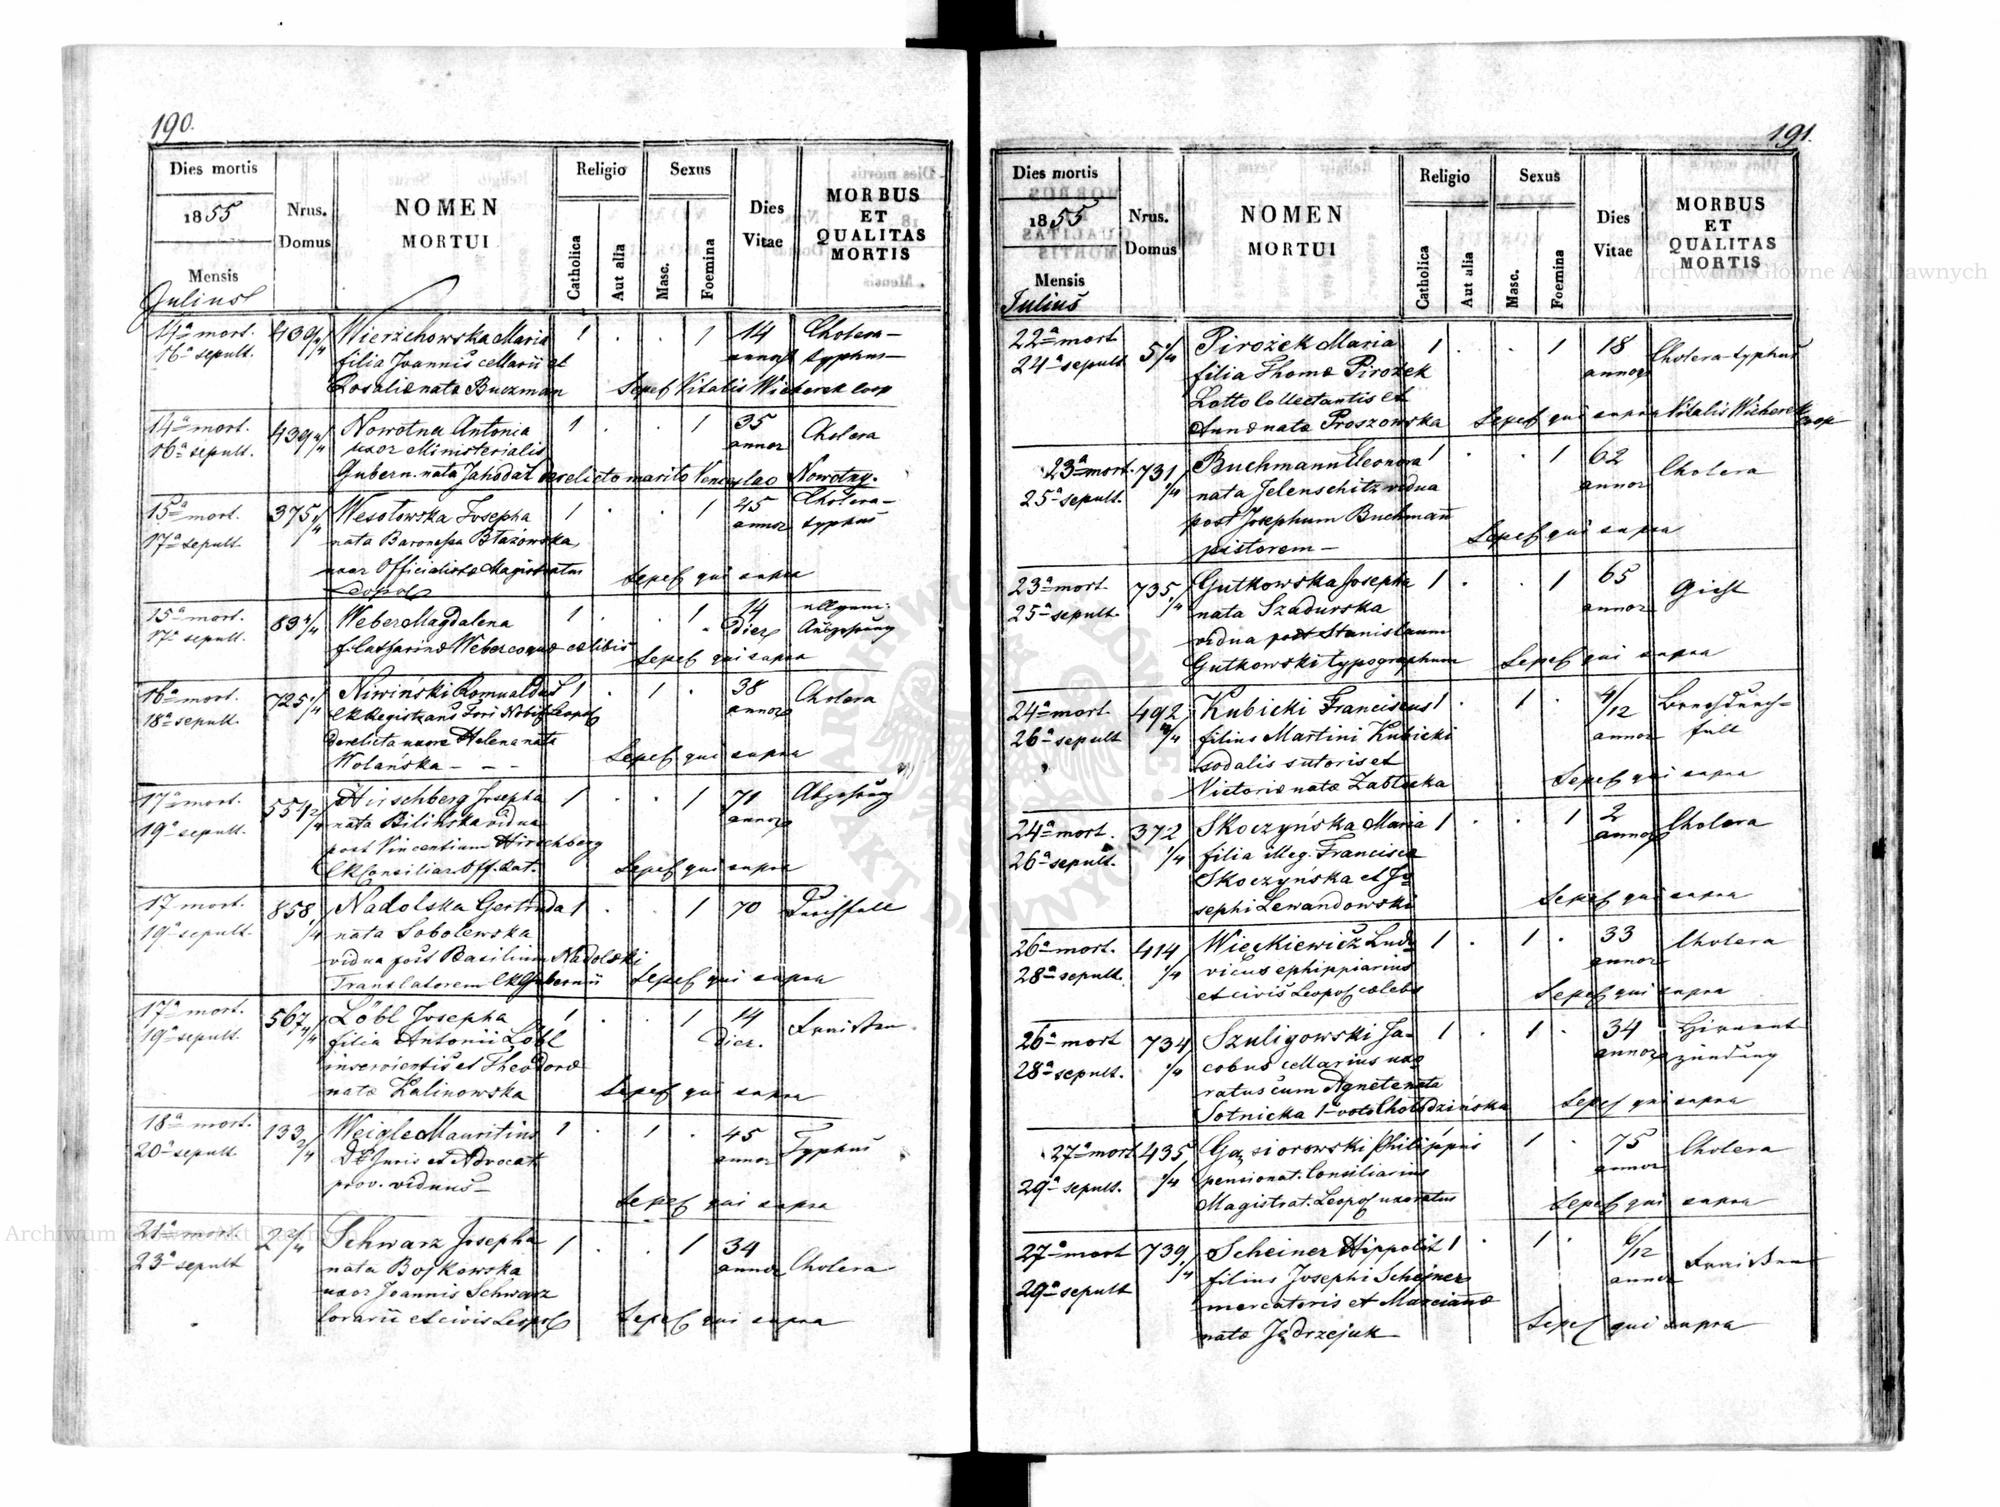 190.
Dies mortis
1855
Mensis
Julius
Nrus.
Domus
NOMEN
MORTUI
Religio
Catholica
Aut alia
Sexus
Masc.
Foemina
Dies
Vitae
MORBUS
ET
QUALITAS
MORTIS
14a mort. 439 2/4 Wierzchowska Maria 1 . . 1 14 Cholera-
16a sepult. filia Joannis Marii et annor typhus
Rosaliæ nata Buczman Sepel Vitalis Wicherek coop
14a mort. 439 2/4 Nowotna Antonia 1 . . 1 35 Cholera
16a sepult. uxor Ministerialis annor
Gubern. nata Jahodal derelicto marito Venceslao Nowotny.
15a mort. 375 1/4 Wesołowska Josepha 1 . . 1 45 Cholera-
17a sepult. nata Baronessa Błażowska annor typhus
uxor Officialistæ Magistratus Sepel qui supra
Leopol
15a mort. 89 4/4 Weber Magdalena 1 . . 1 14
17a sepult. f. Catharinæ Weber coquæ cælibis dier
Sepel qui supra
16a mort. 725 1/4 Niwiński Romualdus 1 . 1 . 38 Cholera
18a sepult. CK Registrans Fori Nobil Leopol annor
derelicta uxore Helena nata Sepel qui supra
Wolańska - - -
17a mort. 554 2/4 Hirschberg Josepha 1 . . 1 71 Abzehrung
19a sepult. nata Bilińska vidua annor
post Vincentium Hirschberg
CK Consiliar. Off. Cat. Sepel qui supra
17 mort. 858 1/4 Nadolska Gertruda 1 . . 1 70 Durchfall
19a sepult. nata Sobolewska
vidua post Basilium Nadolski
Translatorem CK Gubernii Sepel qui supra
17a mort. 567 4/4 Löbl Josepha 1 . . 1 14 Fraisen
19a sepult. filia Antonii Löbl dier.
inservientis et Theodoræ
natæ Kalinowska Sepel qui supra
18a mort. 133 2/4 Weigle Mauritius 1 . 1 . 45 Typhus
20a sepult. Dr Juris et Advocat annor
prov. viduus - Sepel qui supra
21a mort. 2 2/4 Schwarz Josepha 1 . . 1 34 Cholera
23a sepult nata Bojkowska annor
uxor Joannis Schwarz
lorarii et civis Leopol Sepel qui supra
191.
Dies mortis
1855
Mensis
Julius
Nrus.
Domus
NOMEN
MORTUI
Religio
Catholica
Aut alia
Sexus
Masc.
Foemina
Dies
Vitae
MORBUS
ET
QUALITAS
MORTIS
22a mort 5 4/4 Pirożek Maria 1 . . 1 18 Cholera-typhus
24a sepult. filia Thomæ Pirożek annor
Lotto Collectantis et
Annæ natæ Proszowska Sepel qui supra Vitalis Wicherek coop
23a mort. 731 1/4 Buchmann Eleonora 1 . . 1 62 Cholera
25a sepult. nata Jelenschitz vidua annor
post Josephum Buchmañ Sepel qui supra
pistorem -
23a mort 735 1/4 Gutkowska Josepha 1 . . 1 65 Gicht
25a sepult. nata Szadurska annor
vidua post Stanislaum
Gutkowski typographum Sepel qui supra
24a mort. 492 Kubicki Franciscus 1 . 1 . 4/12 Brechdurch=
26a sepult filius Martini Kubicki annor fall
sodalis sutoris et
Victoriæ natæ Zabłocka Sepel qui supra
24a mort. 372 1/4 Skoczyńska Maria 1 . . 1 2 Cholera
26a sepult. filia illeg. Francisca annor
Skoczyńska et Jo
sephi Lewandowski Sepel qui supra
26a mort. 414 1/4 Wieckiewicz Ludo 1 . 1 . 33 Cholera
28a sepult. vicus ephippiarius annor
et civis Leopol cælebs Sepel qui supra
26a mort 734 1/4 Szuligowski Ja- 1 . 1 . 34 Hirnent
28a sepult. cobus Marius uxo annor zündung
ratus cum Agnete nata
Sotnicka 1o voto Chołodzińska Sepel qui supra
27a mort 435 1/4 Gąsiorowski Philippus 1 . 75 Cholera
29a sepult. pensionat. Consiliarius annor
Magistrat. Leopol uxoratus Sepel qui supra
27a mort 739 1/4 Scheiner Hippolit 1 . 1 . 6/12 Fraisen
29a sepult filius Josephi Scheiner annor
mercatoris et Marcianæ
natæ Jędrzejuk Sepel qui supra
Archiwum Główne Akt Dawnych
Archiwum Główne Akt Dawnych
ARCHIWUM GŁÓWNE AKT DAWNYCH